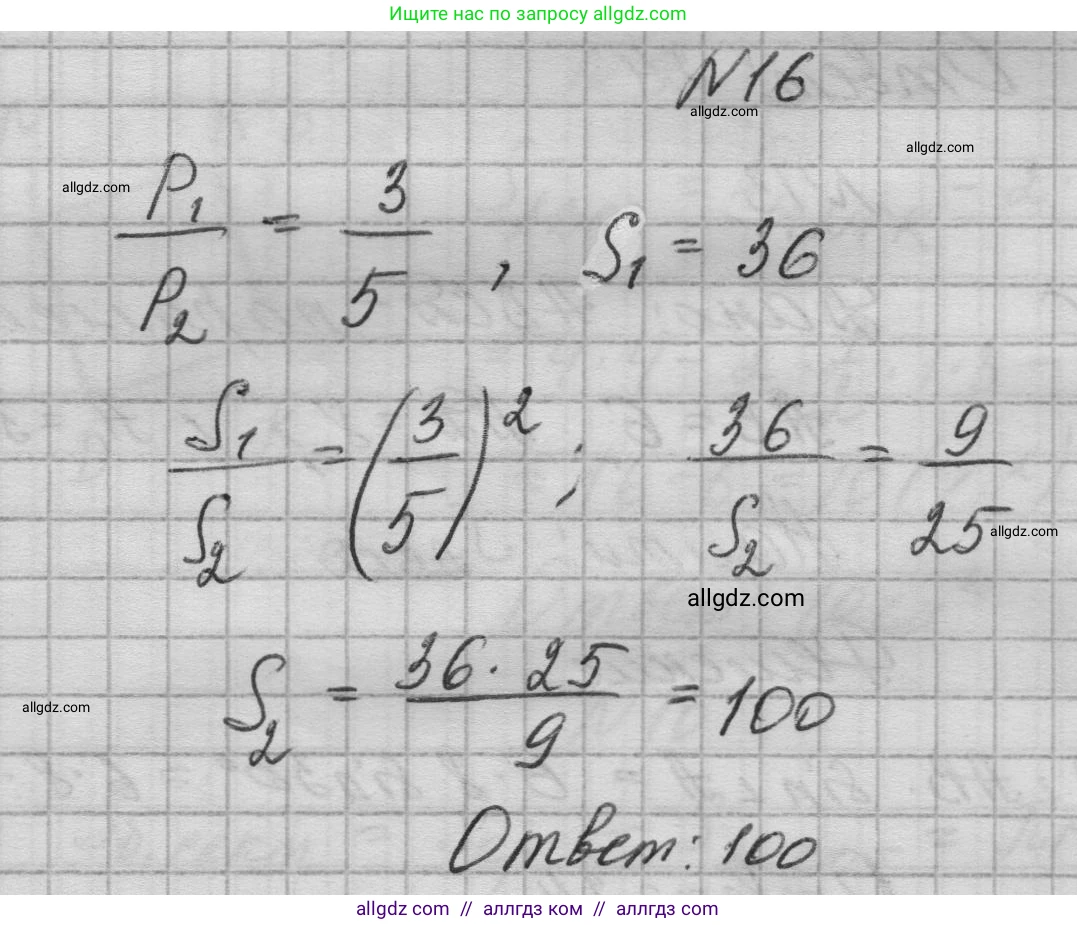 Ищите нас по запросу allgdz.com
N16
allgdz.com
allgdz.com
allgdz.com
P₁/P₂ = 3/5 , S₁ = 36
S₁/S₂ = (3/5)² ; 36/S₂ = 9/25
allgdz.com
allgdz.com
S₂ = 36 · 25/9 = 100
allgdz.com
Ответ: 100
allgdz com // аллгдз ком // аллгдз com